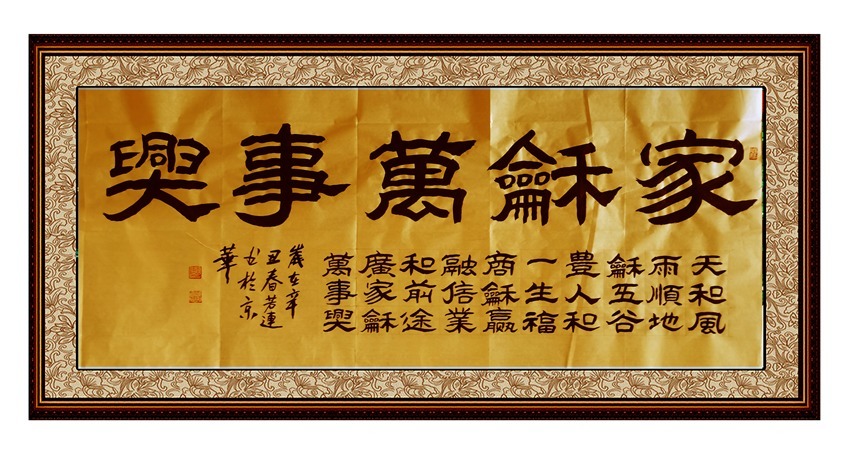 家龢萬事興
天和風
雨順地
龢五谷
豊人和
一生福
商龢贏
融信業
和前途
廣家龢
萬事興
歲在辛
丑春連
书於京
華